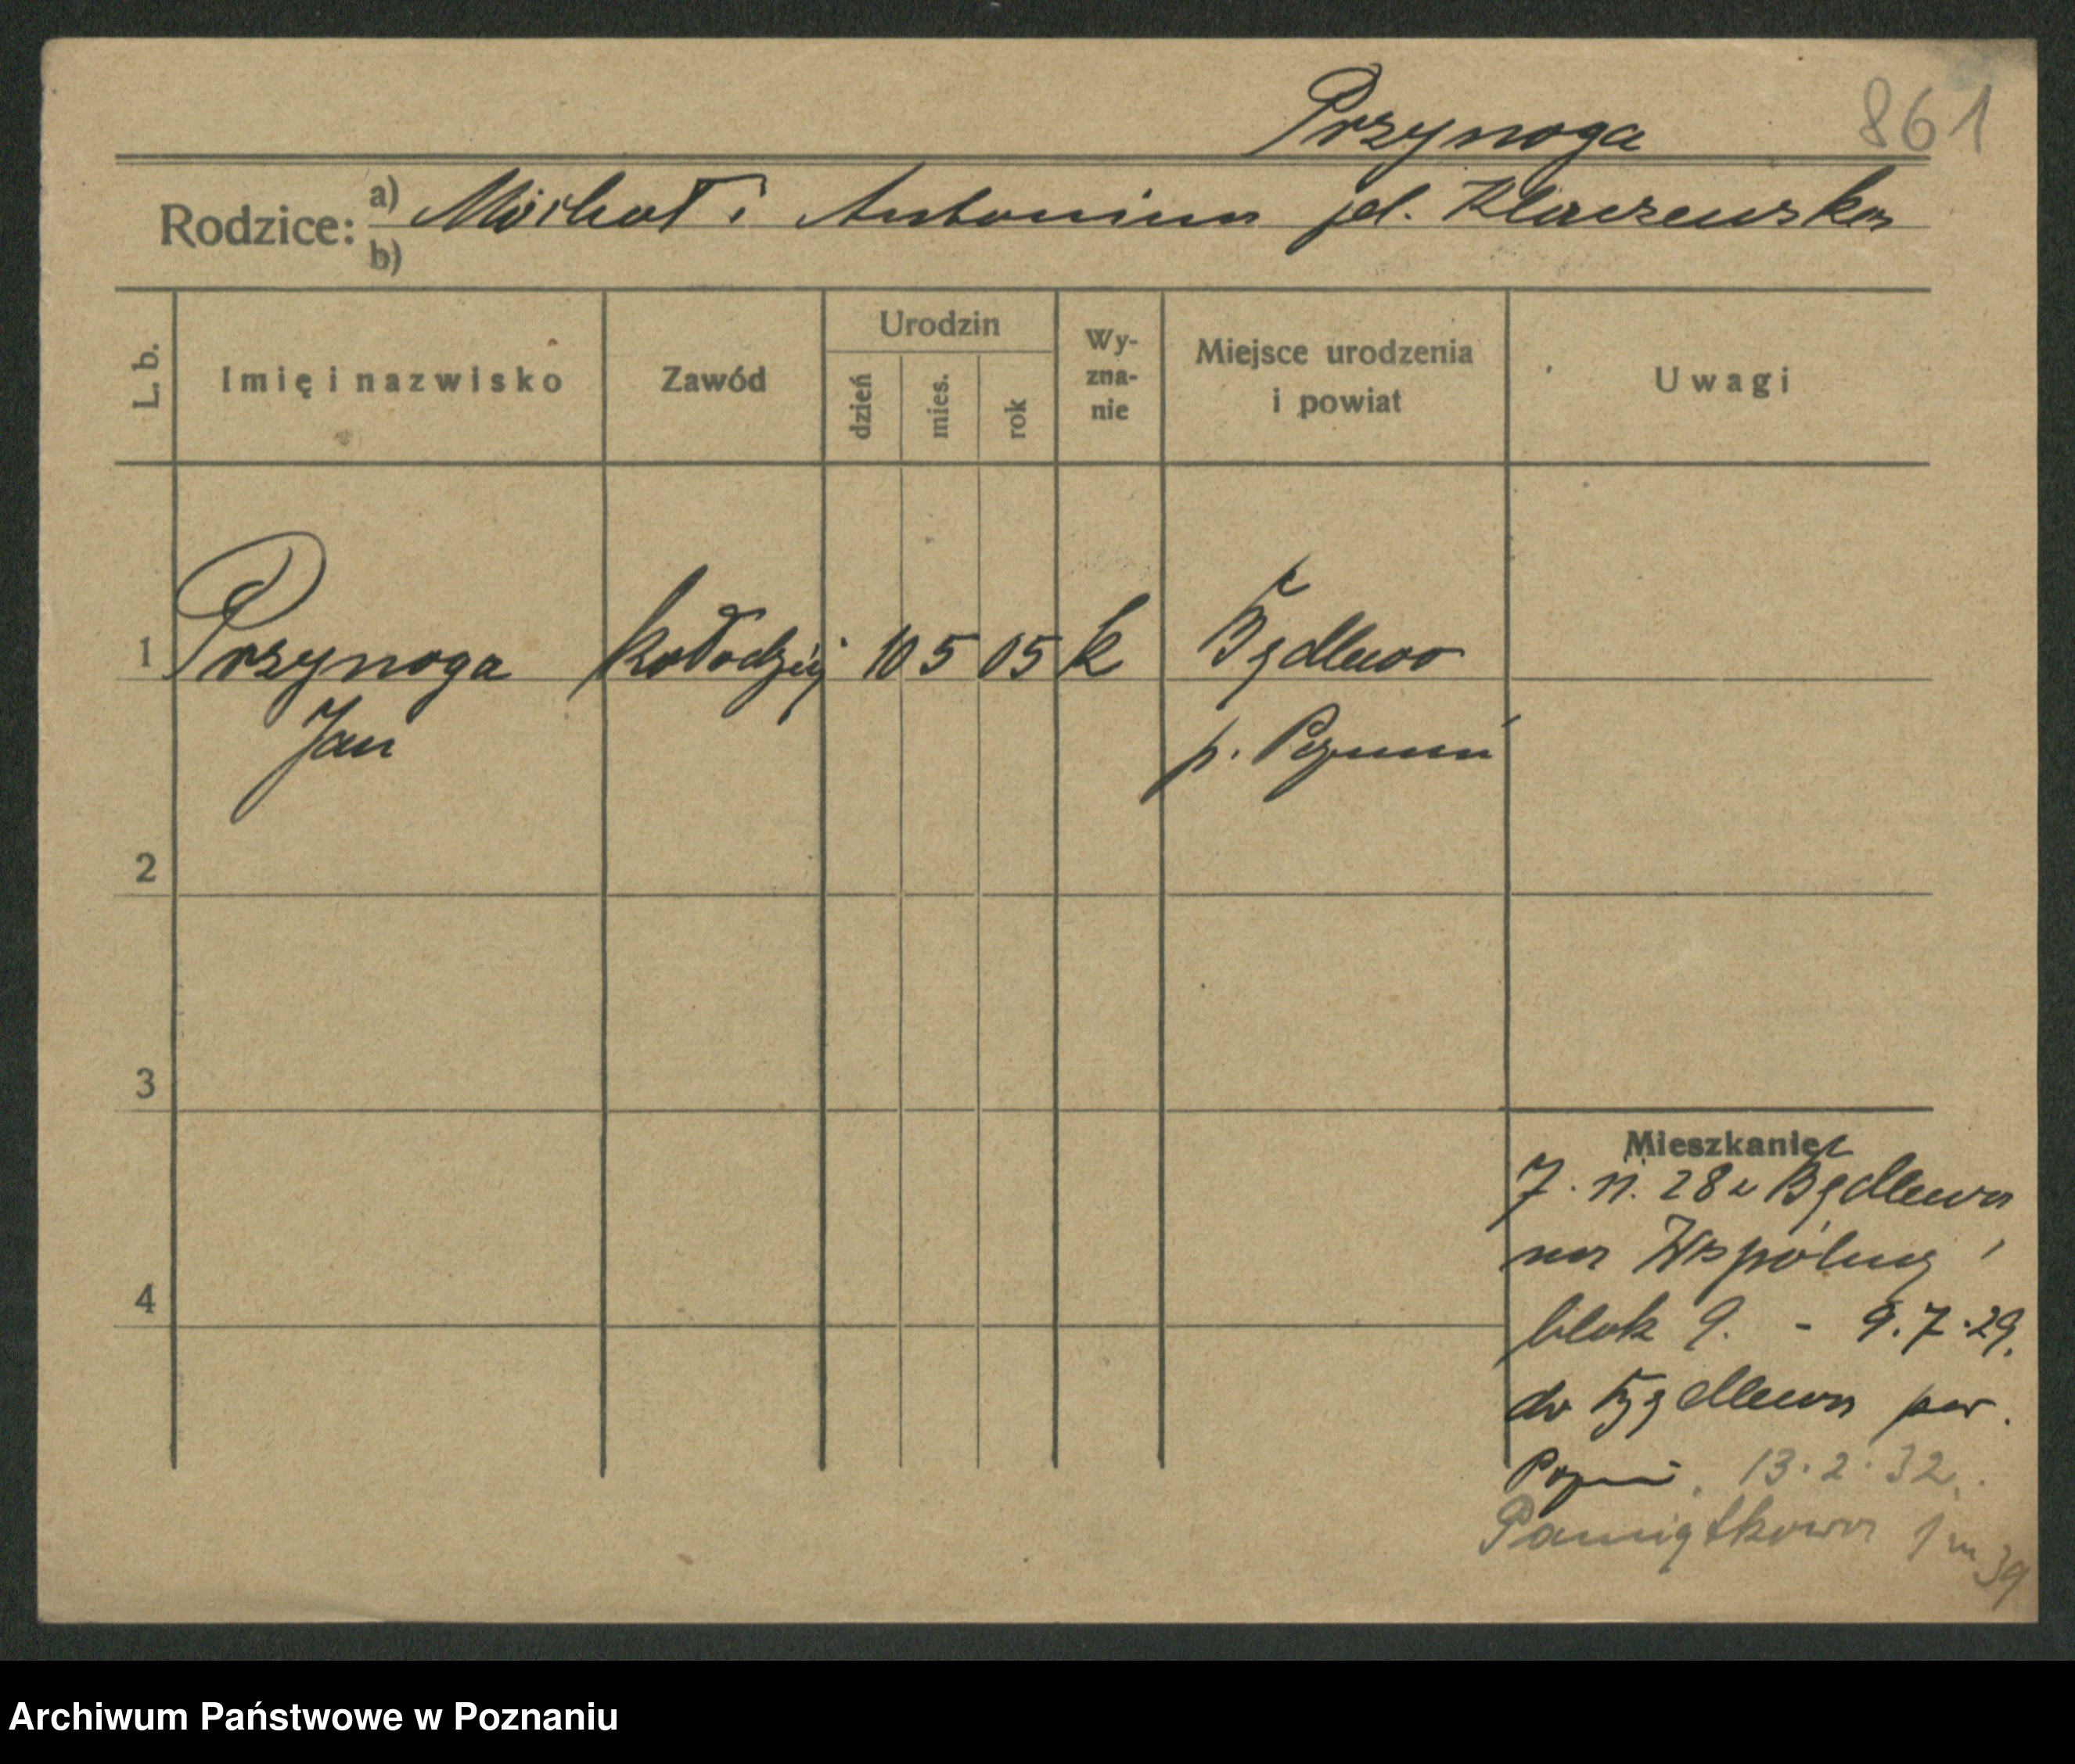 Przynoga 861
Rodzice: a) Michał i Antonina jd. Klaczewska
b)
L. b. Imię i nazwisko Zawód Urodzin dzień mies. rok Wy-zna-nie Miejsce urodzenia i powiat Uwagi
1 Przynoga kołodziej 10 5 05 k Będlewo
Jan p. Poznań
2
3
4
Mieszkanie
7. 11. 28 z Będlewa
na Wspólną
blok 9. - 9.7.29.
do Będlewa pow.
Pozn. 13.2.32.
Pamiątkowa 1 m 39
Archiwum Państwowe w Poznaniu